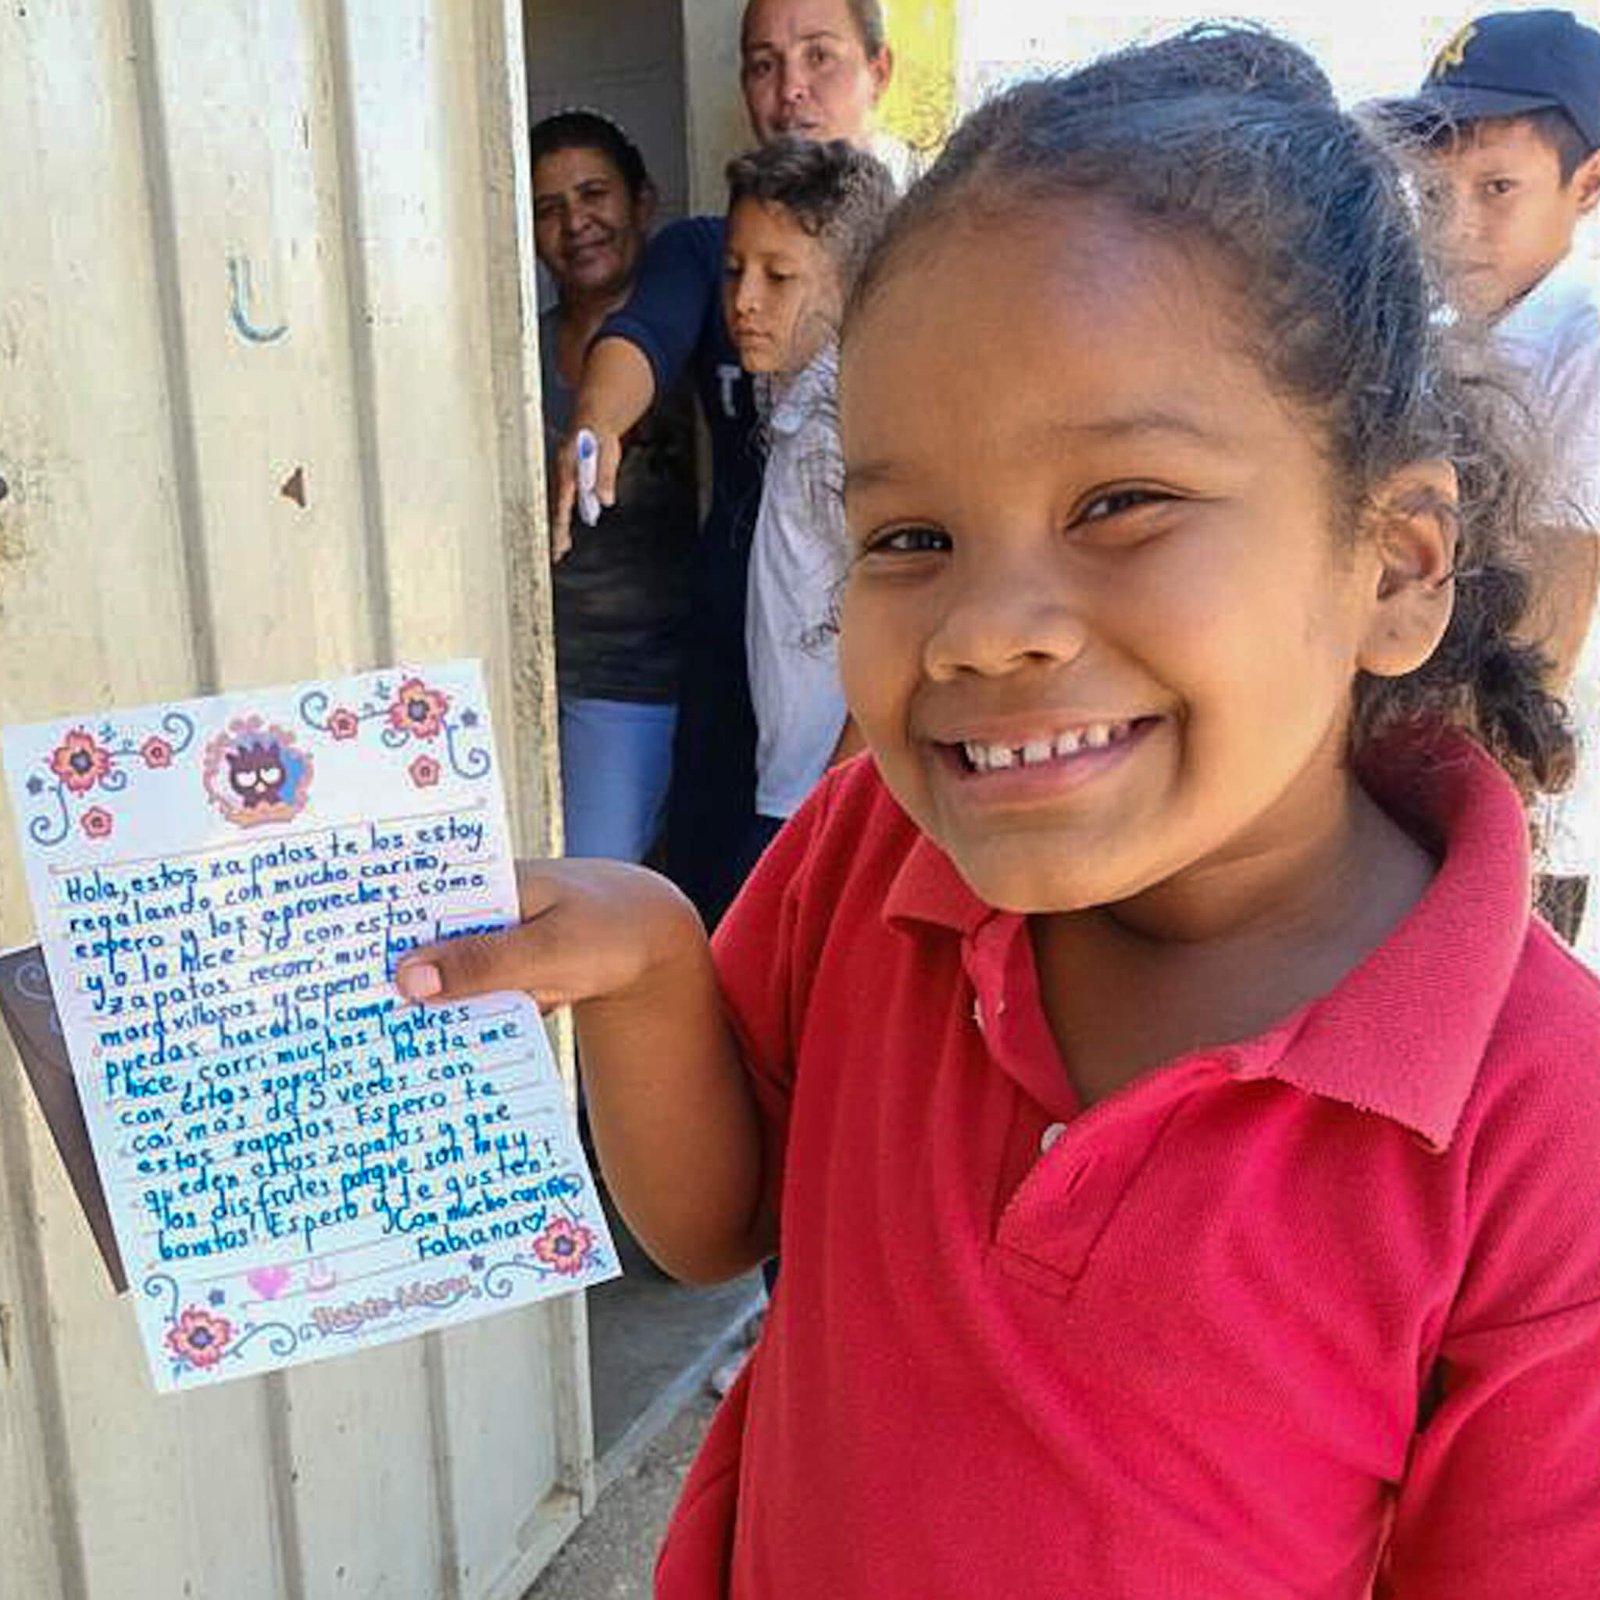 Hola, estos zapatos te los estoy
regalando con mucho cariño,
espero y los aproveches como
yo lo hice! Yo con estos
zapatos recorri muchos lugares
maravillosos y espero
puedas hacerlo como yo
hice, corri muchos lugares
con estos zapatos y hasta me
caí mas de 5 veces con
estos zapatos. Espero te
queden estos zapatos y que
los disfrutes porque son muy
bonitos! Espero y te gusten!
Con mucho cariño,
Fabiana
T